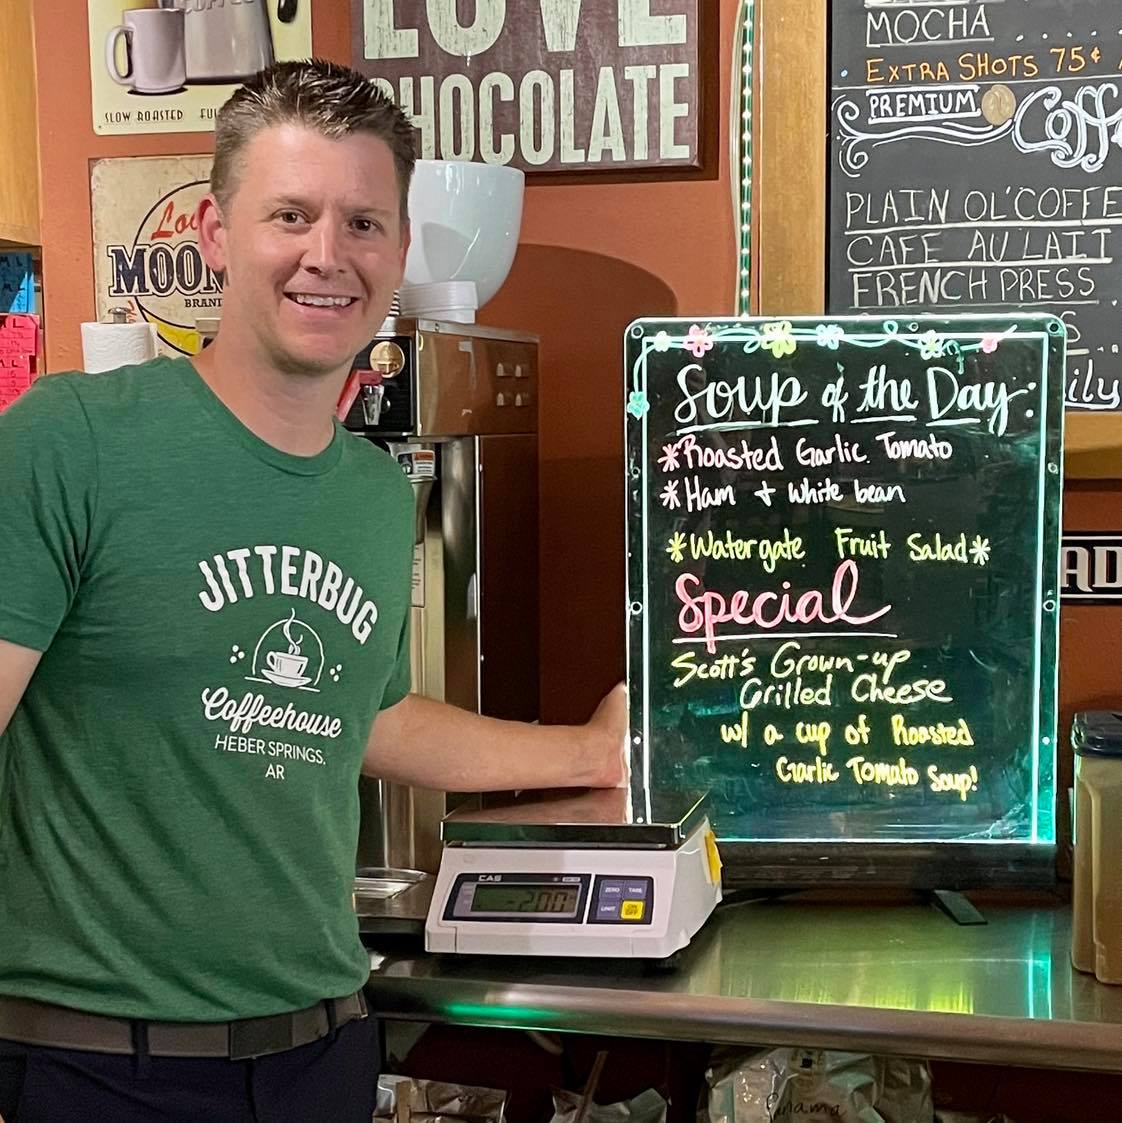 COFFEE
SLOW ROASTED
LOVE
CHOCOLATE
MOCHA . . . . .
EXTRA SHOTS 75¢
PREMIUM
PLAIN OL' COFFEE
CAFE AU LAIT
FRENCH PRESS
BRAND
JITTERBUG
Coffeehouse
HEBER SPRINGS,
AR
Soup of the Day:
*Roasted Garlic Tomato
*Ham + white bean
*Watergate Fruit Salad*
Special
Scott's Grown-up
Grilled Cheese
w/ a cup of Roasted
Garlic Tomato Soup!
CAS
-2.00
ZERO TARE
UNIT ON OFF
Panama